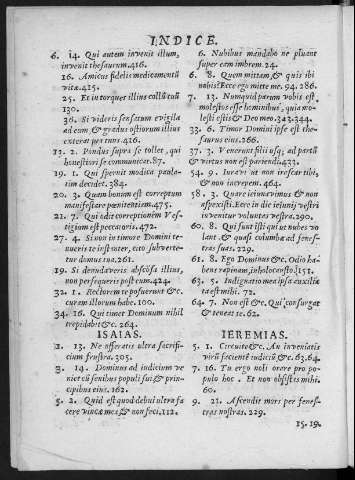 INDICE.
6. 14. Qui autem invenit illum,
invenit thesaurum. 416.
16. Amicus fidelis medicamentũ
vitæ. 415.
25. Et in torquet illius collũ tuũ
130.
36. Si videris sensatum evigila
ad eum & gradus ostiorum illius
exterat pes tuus. 416.
13. 2. Pondus supra se tollet, qui
honestiori se communicat. 87.
19. 1. Qui spernit modica paula-
tim decidet. 384.
20. 3. Quam bonum est correptum
manifestare pænitentiam. 475.
21. 7. Qui odit correptionem vestigium
est peccatoris. 472.
27. 4. Si non in timore Domini te-
nueris te instanter, cito subverte-
tur domus tua. 261.
19. Si denudaveris abscõsa illius,
non persequeris post eum. 424.
32. 1. Rectorem te posuerunt &c.
curam illorum habe. 100.
34. 16. Qui timet Dominum nihil
trepidabit &c. 264.
ISAIAS.
1. 13. Ne offeratis ultra sacrifi-
cium frustra. 305.
3. 14. Dominus ad iudicium ve-
niet cũ senibus populi sui & prin-
cipibus eius. 162.
5. 2. Quid est quod debui ultra fa
cere vineæ meæ & non feci. 112.
6. Nubibus mandabo ne pluant
super eam imbrem. 24.
6. 8. Quem mittam & quis ibi
nobis? Ecce ego mitte me. 94. 286.
7. 13. Nunquid parum vobis est
molestos esse hominibus, quia mo-
lesti estis & Deo meo. 343. 344.
33. 6. Timor Domini ipse est the-
saurus eius. 266.
37. 3. Venerunt filii usq; ad partũ
& virtus non est pariendi. 433.
54. 9. Iuravi ut non irascar tibi,
& non increpem. 464.
58. 3. Quare ieiunavimus & non
aspexisti. Ecce in die ieiunij vestri
invenitur voluntas vestra. 290.
60. 8. Qui sunt isti qui ut nubes vo
lant & quasi columbæ ad fenes-
tras suas. 229.
61. 8. Ego Dominus &c. Odio ha-
bens rapinam, in holocausto. 151.
63. 5. Indignatio mea ipsa auxilia
ta est mihi. 62.
64. 7. Non est &c. Qui consurgat
& teneat te. 62.
IEREMIAS.
5. 1. Circuite &c. An inveniatis
virũ facientẽ iudiciũ &c. 63. 64.
7. 16. Tu ergo noli orare pro po-
pulo hoc. Et non obsistas mihi.
60.
9. 21. Ascendit mors per fenes-
tras nostras. 229.
15. 19.